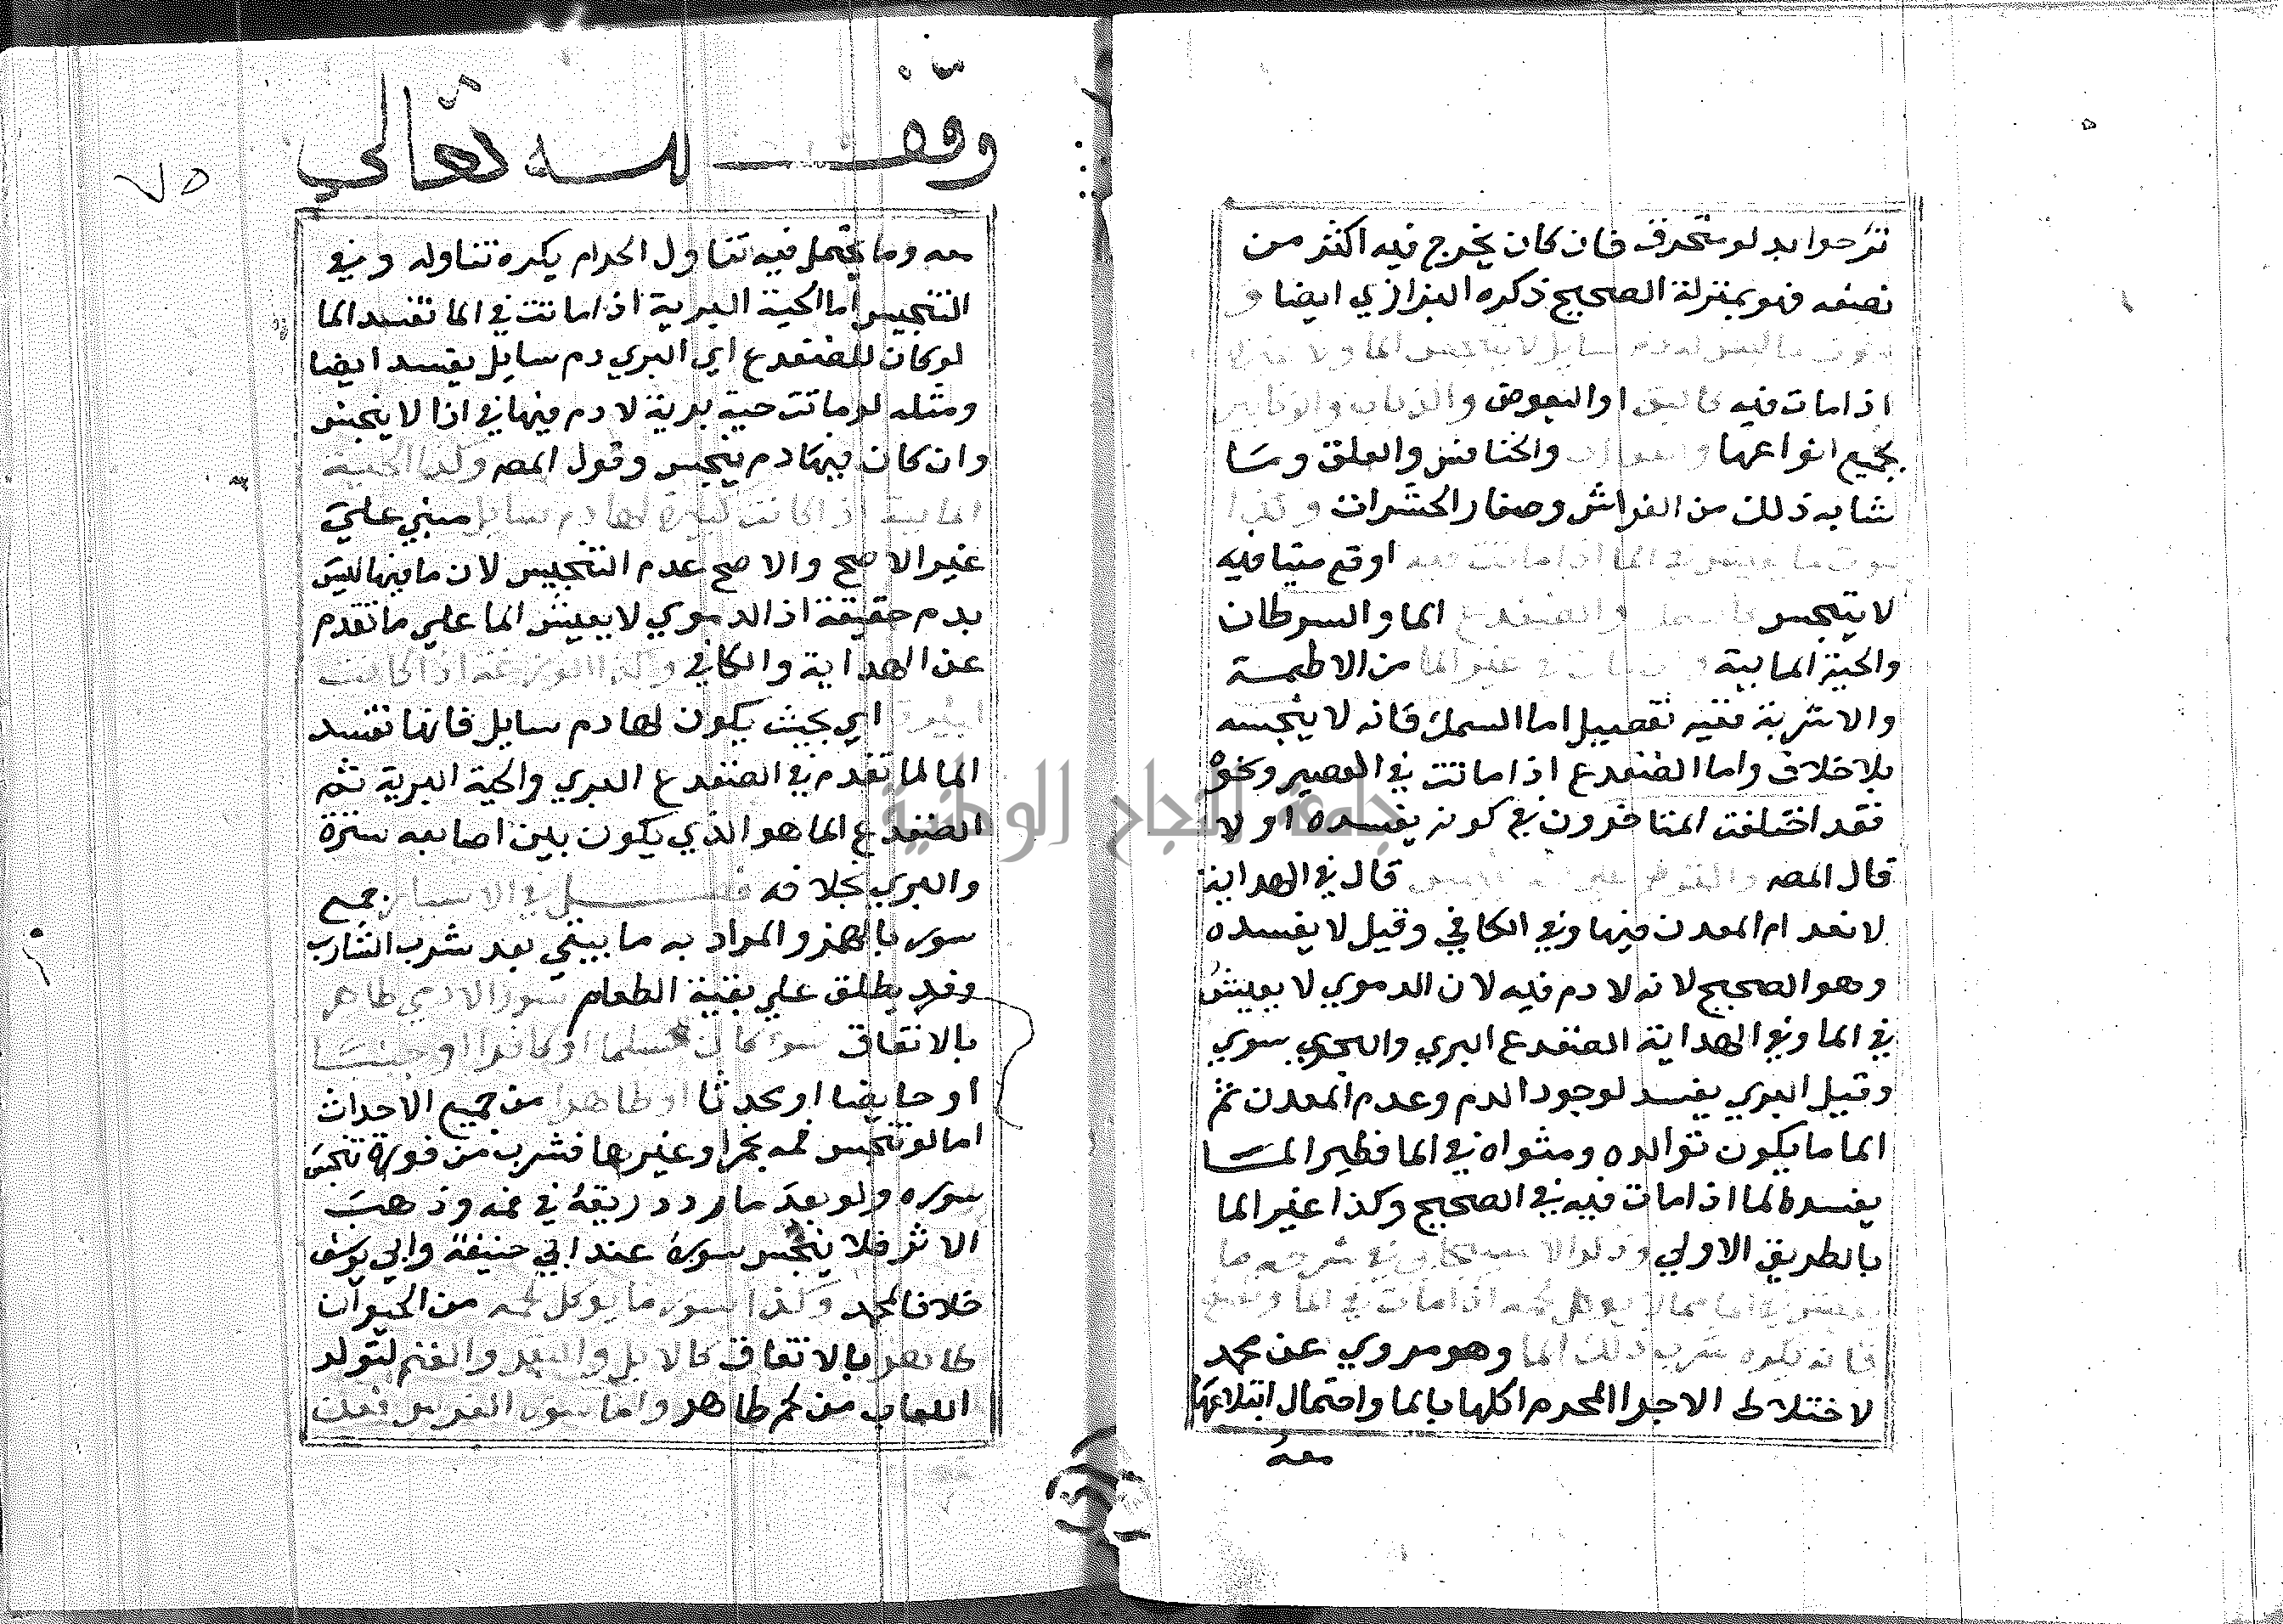 تزحوا بدلو منخرق فان كان يخرج فيه اكثر من
نصفه فهو بمنزلة الصحيح ذكره البزازي ايضا و
موت ما ليس له دم سايل لا ينجس الما ولا غيره
اذا مات فيه كالبق او البعوض والذباب والزنابير
بجميع انواعها والعقارب والخنافس والعلق وما
شابه ذلك من الفراش وصغار الحشرات وكذا
موت ما يعيش في الما اذا مات فيه اوقع ميتا فيه
لا ينجس كالسمك والضفدع الما والسرطان
والحية المايية وان مات في غير الما من الاطعمة
والاشربة ففيه تفصيل اما السمك فانه لا ينجسه
بلا خلاف واما الضفدع اذا ماتت في العصير ونحوه
فقد اختلفت المتاخرون في كونه يفسده او لا
قال المصه قال في الهداية
لانعدام المعدن فيها وفي الكافي وقيل لا يفسده
وهو الصحيح لانه لا دم فيه لان الدموي لا يعيش
في الما وفي الهداية الضفدع البري والبحري سوي
وقيل البري يفسد لوجود الدم وعدم المعدن ثم
الما ما يكون توالده ومثواه في الما فطير الما
يفسده لما اذا مات فيه في الصحيح وكذا غير الما
بالطريق الاولي وذكر الاسبيجابي في شرحه ما
يعيش في الما مما لا يوكل لحمه اذا مات في الما وتفتت
فانه يكره شرب ذلك الما وهو مروي عن محمد
لاختلاط الاجزا المحرم اكلها بالما واحتمال ابتلاعها
معه
وقف لله تعالي
٧٥
معه وما يحتمل فيه تناول الحرام يكره تناوله وفي
التنجيس اما الحية البرية اذا ماتت في الما تفسد الما
لو كان للضفدع اي البري دم سايل يفسد ايضا
ومثله لو ماتت حية برية لا دم فيها في اذا لا ينجس
وان كان فيها دم ينجس وقول المصه وكذا الحية
المايية اذا كانت كبيرة لها دم سايل مبني علي
غير الاصح والاصح عدم التنجيس لان ما فيها ليس
بدم حقيقة اذ الدموي لا يعيش الما علي ما تقدم
عن الهداية والكافي وكذا الوزغة اذا كانت
كبيرة اي بحيث يكون لها دم سايل فانها تفسد
الما لما تقدم في الضفدع البري والحية البرية ثم
الضفدع الما هو الذي يكون بين اصابعه سترة
والبري بخلافه فصل في الاسيار جميع
سور بالهمز والمراد به ما يبقي بعد شرب الشارب
وقد يطلق علي بقية الطعام سور الادمي طاهر
بالاتفاق سوا كان مسلما او كافرا او جنبا
او حايضا او محدثا او طاهرا من جميع الاحداث
اما لو تنجس فمه بخمر او غيرها فشرب من فوره تنجس
سوره ولو بعد ما ردد ريقه في فمه وذهب
الاثر فلا ينجس سوره عند ابي حنيفة وابي يوسف
خلافا لمحمد وكذا سور ما يوكل لحمه من الحيوان
طاهر بالاتفاق كالابل والبقر والغنم لتولد
اللعاب من لحم طاهر واما سور الفرس فعن
جامعة النجاح الوطنية